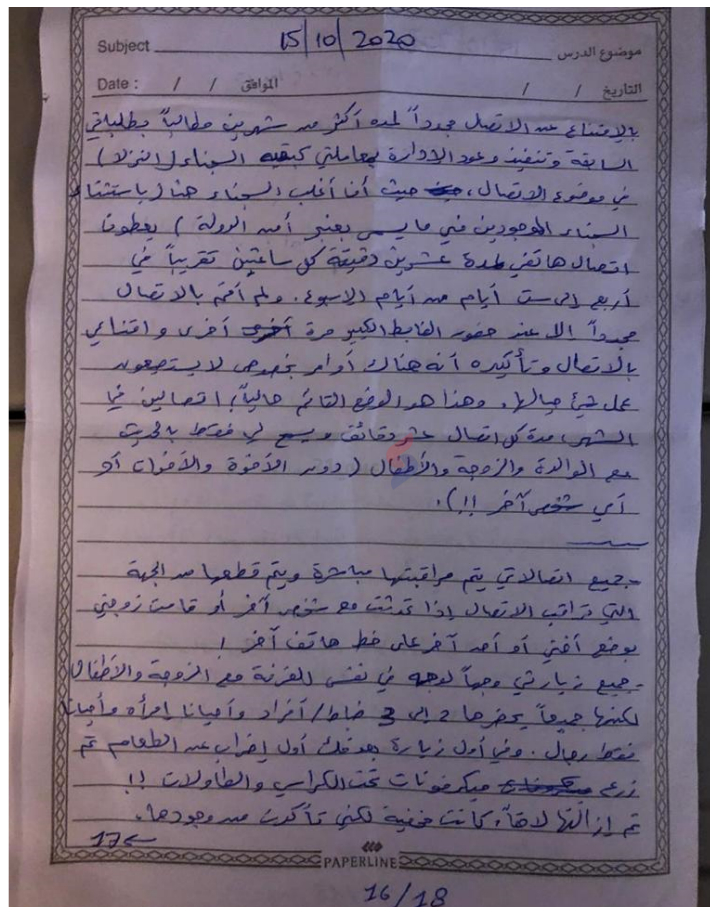 Subject 15/10/2020 موضوع الدرس
Date : / / الموافق / / التاريخ
بالامتناع عن الاتصال مجدداً لمدة أكثر من شهرين مطالباً بطلباتي
السابقة وتنفيذ وعود الإدارة بمعاملتي كبقية السجناء (النزلاء)
في موضوع الاتصال، حيث أن أغلب السجناء هنا (باستثناء
السجناء الموجودين في ما يسمى بعنبر أمن الدولة) يعطون
اتصال هاتفي لمدة عشرين دقيقة كل ساعتين تقريباً في
أربع إلى ست أيام من أيام الاسبوع. ولم أقم بالاتصال
مجدداً إلا عند حضور الضابط الكبير مرة أخرى واقناعي
بالاتصال وتأكيده أنه هناك أوامر بخصوص لا يستطيعون
عمل شيء حيالها. وهذا هو الوضع القائم حالياً، اتصالين في
الشهر، مدة كل اتصال عشر دقائق ويسمح لي فقط بالحديث
مع الوالدة والزوجة والأطفال (دون الأخوة والأخوات أو
أي شخص آخر !!).
- جميع اتصالاتي يتم مراقبتها مباشرة ويتم قطعها من الجهة
التي تراقب الاتصال إذا تحدثت مع شخص آخر أو قامت زوجتي
بوضع أختي أو أحد آخر على خط هاتف آخر !
- جميع زيارتي وجهاً لوجه في نفس الغرفة مع الزوجة والأطفال
لكنها جميعاً يحضرها 2 إلى 3 ضباط/أفراد وأحيانا إمرأه وأحيانا
فقط رجال. وفي أول زيارة بعد فك أول إضراب عن الطعام تم
زرع ميكرفونات تحت الكراسي والطاولات !!
تم إزالتها لاحقاً، كانت مخفية لكني تأكدت من وجودها.
17←
PAPERLINE
16/18